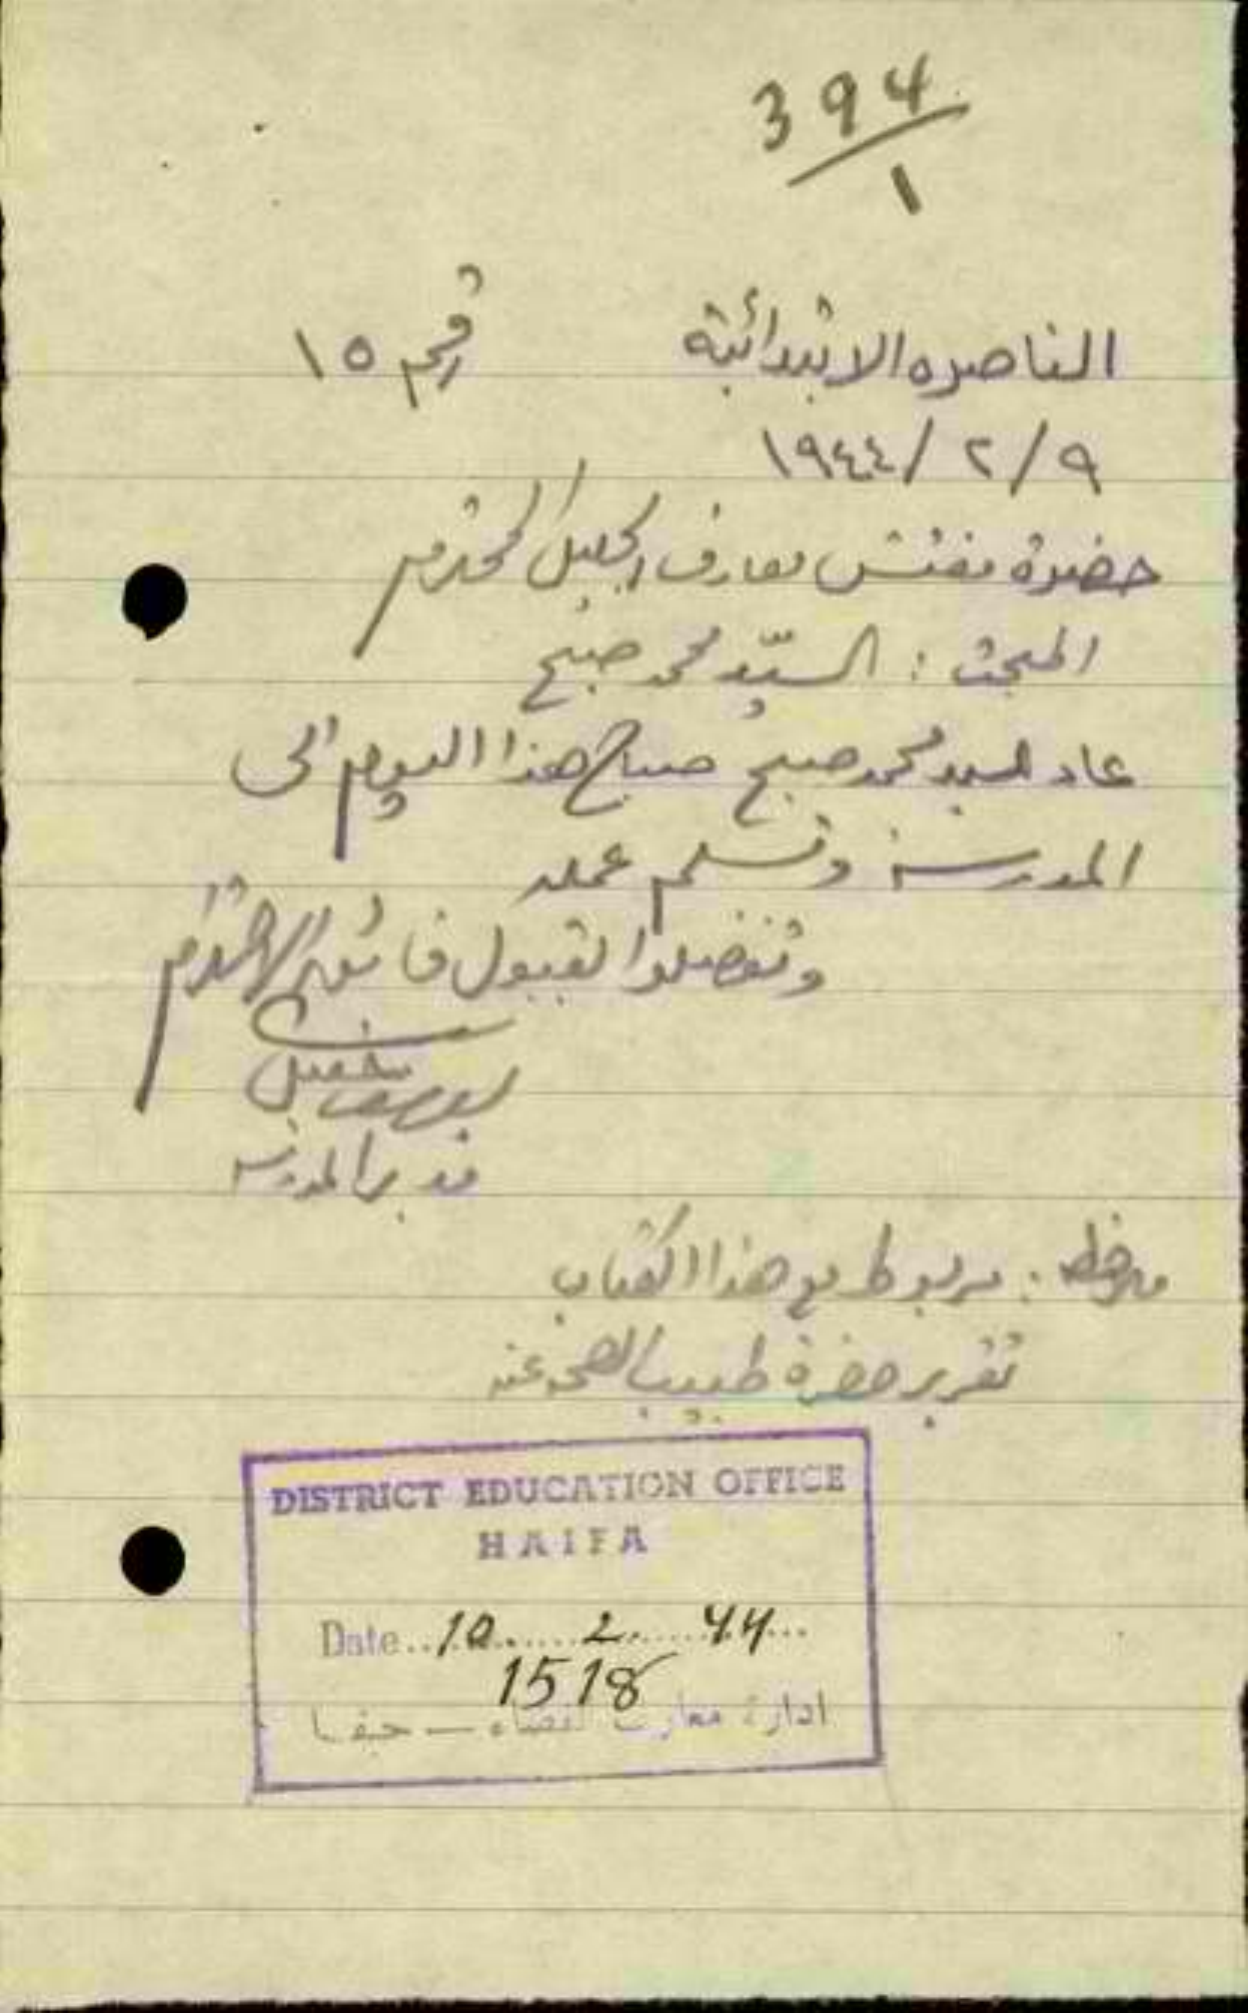 394
١
الناصره الابتدائية رقم ١٥
٩/ ٢ /١٩٤٤
حضرة مفتش معارف الجليل المحترم
المبحث : السيّد محمد صبح
عاد السيد محمد صبح صباح هذا اليوم الى
المدرسة وتسلم عمله
وتفضلوا بقبول فائق الاحترام
يوسف
مدير المدرسه
ملاحظه : مربوط مع هذا الكتاب
تقرير حضرة طبيب الصحه عنه
DISTRICT EDUCATION OFFICE
HAIFA
Date..10......2......44...
1518
ادارة معارف قضاء — حيفا